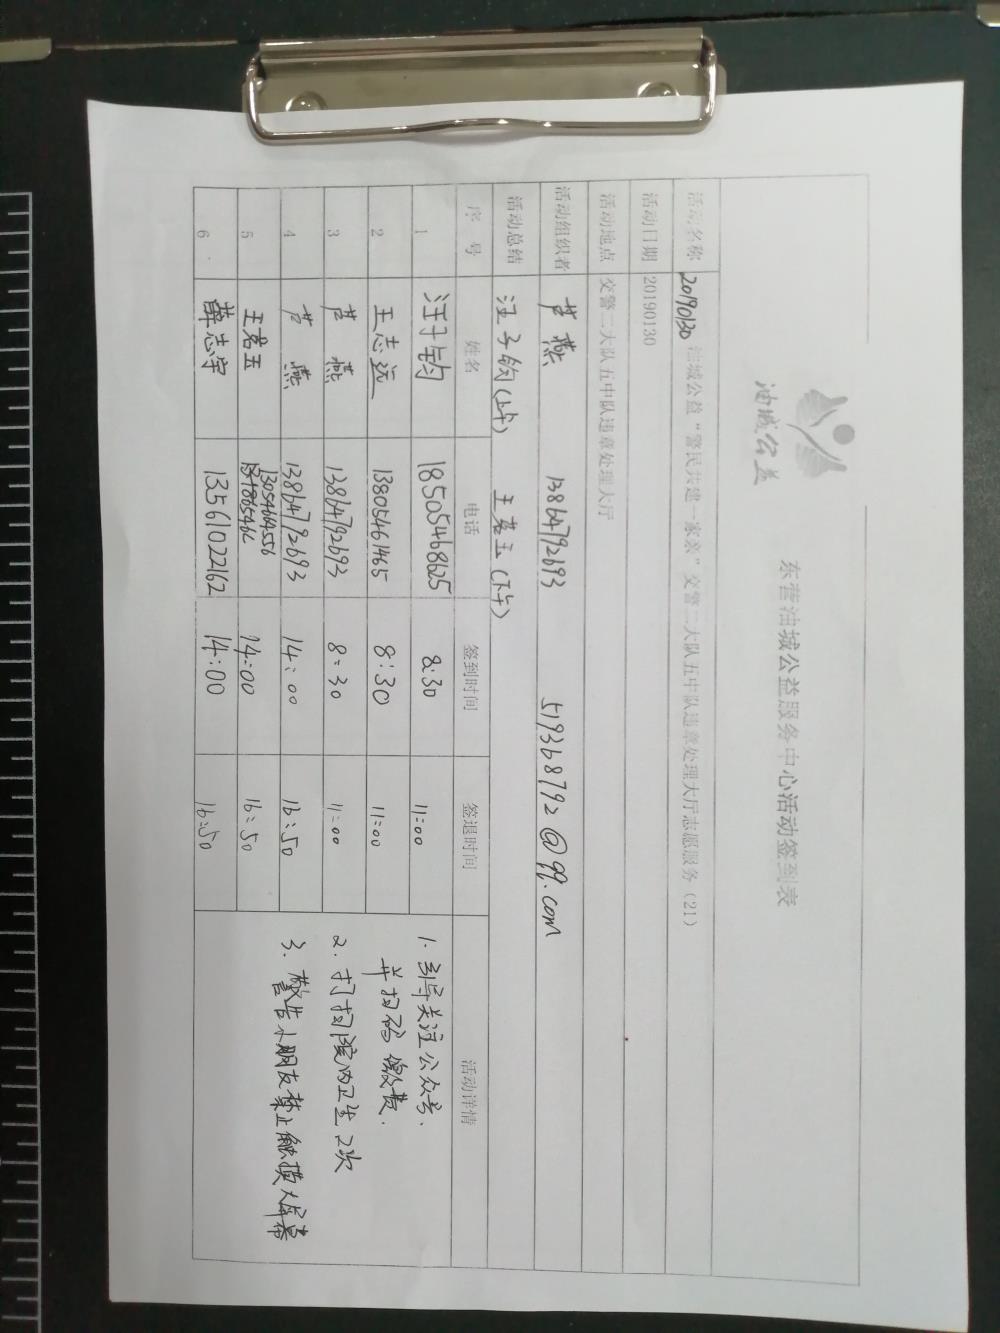 油城公益
东营油城公益服务中心活动签到表
活动名称 20190130 油城公益“警民共建一家亲”交警二大队五中队违章处理大厅志愿服务（21）
活动日期 20190130
活动地点 交警二大队五中队违章处理大厅
活动组织者 芦燕 13864792693 519368792@qq.com
活动总结 汪子钧(上午) 王茗玉(下午)
序号 姓名 电话 签到时间 签退时间 活动详情
1 汪子钧 18505468625 8:30 11:00
2 王志远 13805461465 8:30 11:00
3 芦燕 13864792693 8:30 11:00
4 芦燕 13864792693 14:00 16:50
5 王茗玉 14:00 16:50
6 薛志宇 13561022162 14:00 16:50
1. 引导关注公众号.
并扫码缴费.
2. 打扫院内卫生2次
3. 警告小朋友禁止触摸大屏幕